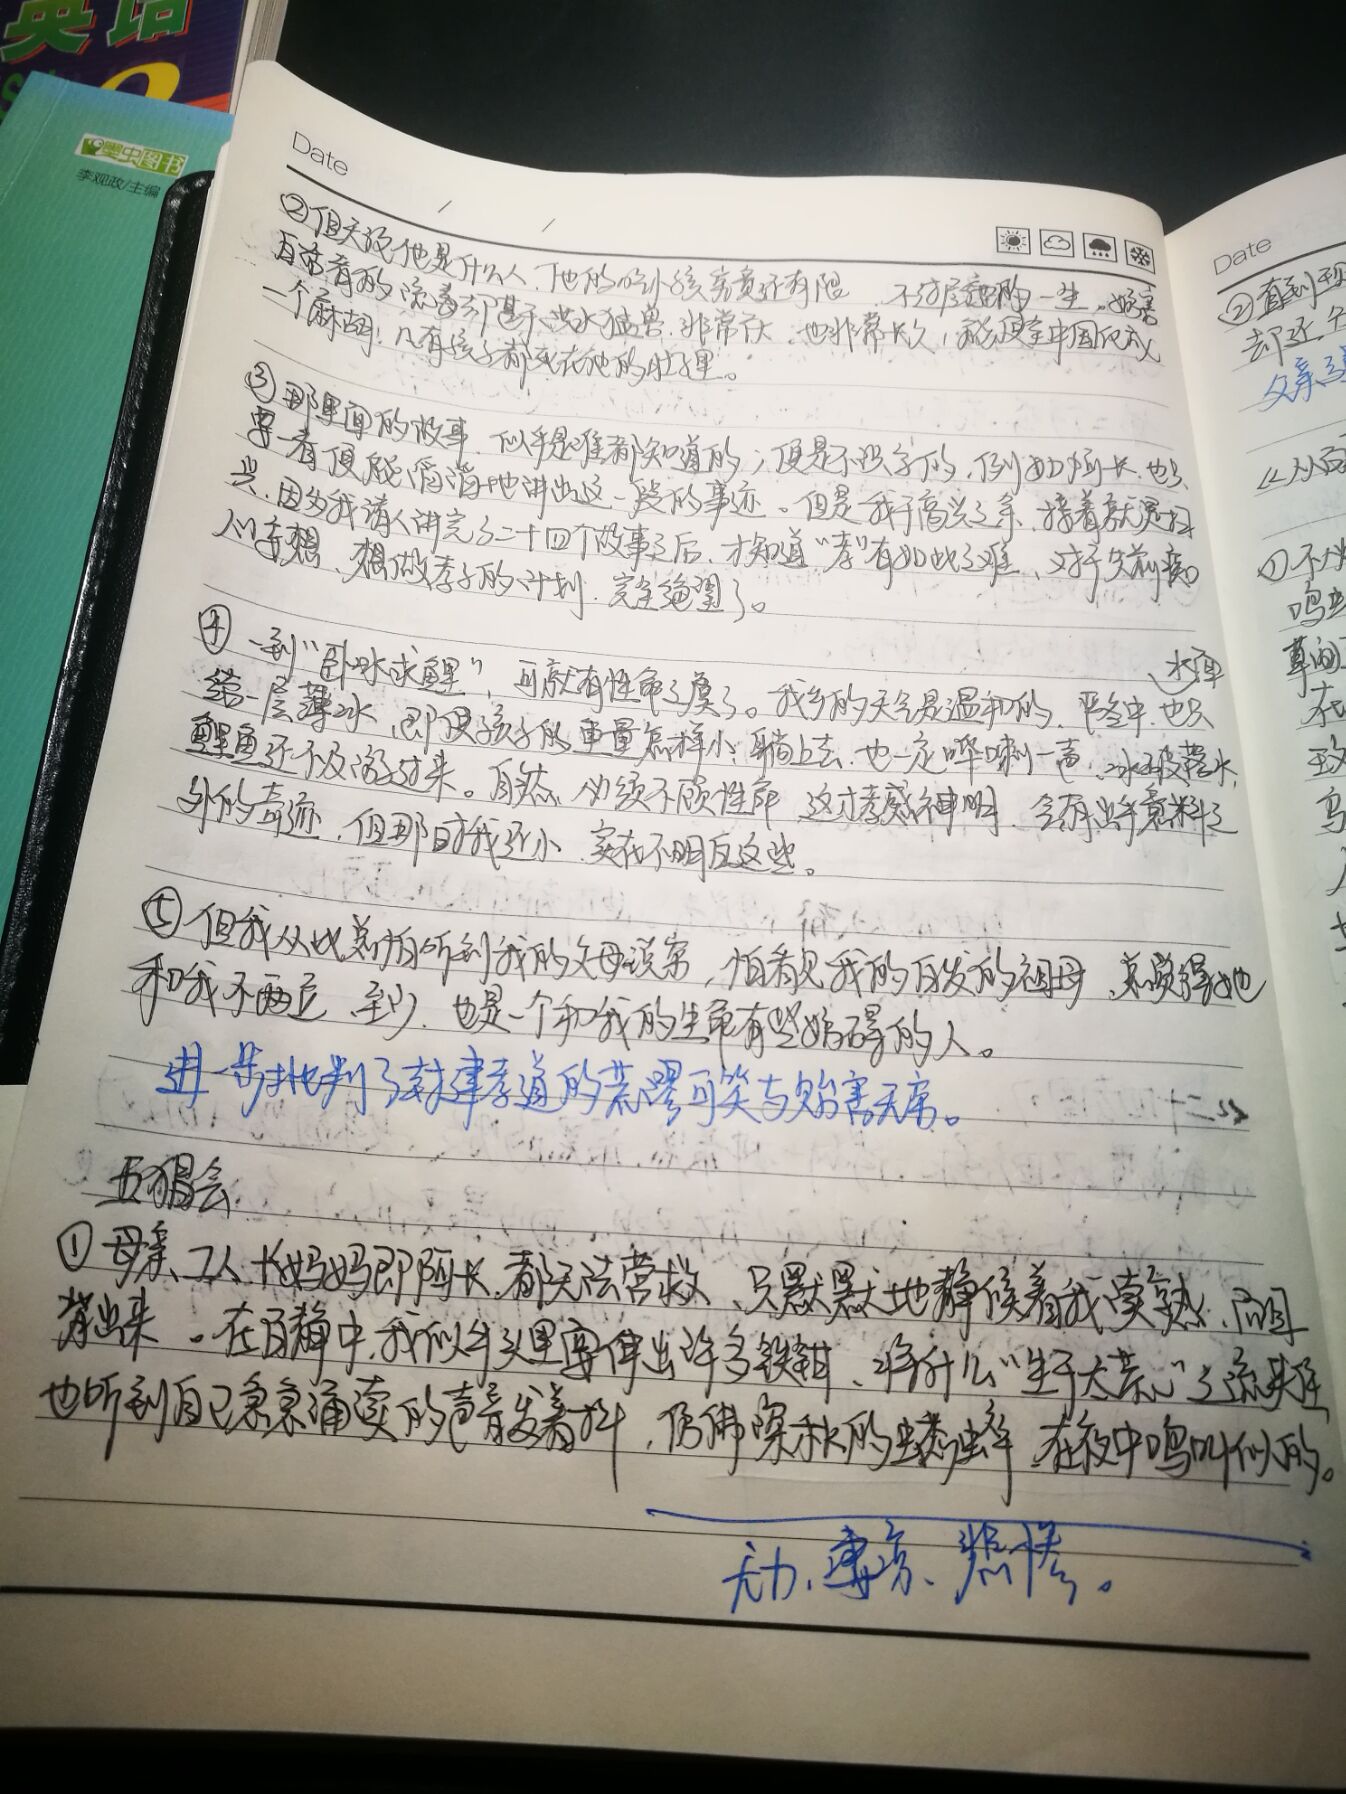 英语
墨虫图书
李观政/主编
Date
②但无论他是什么人,他的吃小孩究竟还有限,不过尽他的一生。妨害
白话者的流毒却甚于洪水猛兽,非常广大,也非常长久,能使全中国化成
一个麻胡,凡有孩子都死在他的肚子里。
③那里面的故事,似乎是谁都知道的;便是不识字的,例如阿长,也只
要一看便能滔滔地讲出这一段的事迹。但是我于高兴之余,接着就是扫
兴,因为我请人讲完了二十四个故事之后,才知道“孝”有如此之难,对于先前痴
心妄想,想做孝子的计划,完全绝望了。
④一到“卧冰求鲤”,可就有性命之虞了。我乡的天气是温和的,严冬中,也只
水面
结一层薄冰,即使孩子的重量怎样小,躺上去,也一定哗喇一声,冰破落水,
鲤鱼还不及游过来。自然,必须不顾性命,这才孝感神明,会有出乎意料之
外的奇迹,但那时我还小,实在不明白这些。
⑤但我从此总怕听到我的父母说穷,怕看见我的白发的祖母,总觉得她
和我不两立,至少,也是一个和我的生命有些妨碍的人。
进一步批判了封建孝道的荒谬可笑与贻害无穷。
五猖会
①母亲、工人、长妈妈即阿长,都无法营救,只默默地静候着我读熟,而且
背出来。在百静中,我似乎头里要伸出许多铁钳,将什么“生于太荒”之流夹住,
也听到自己急急诵读的声音发着抖,仿佛深秋的蟋蟀,在夜中鸣叫似的。
无力、凄凉、悲惨。
Date
②直到现
却还
父亲
《从百
①不
鸣
草间
在